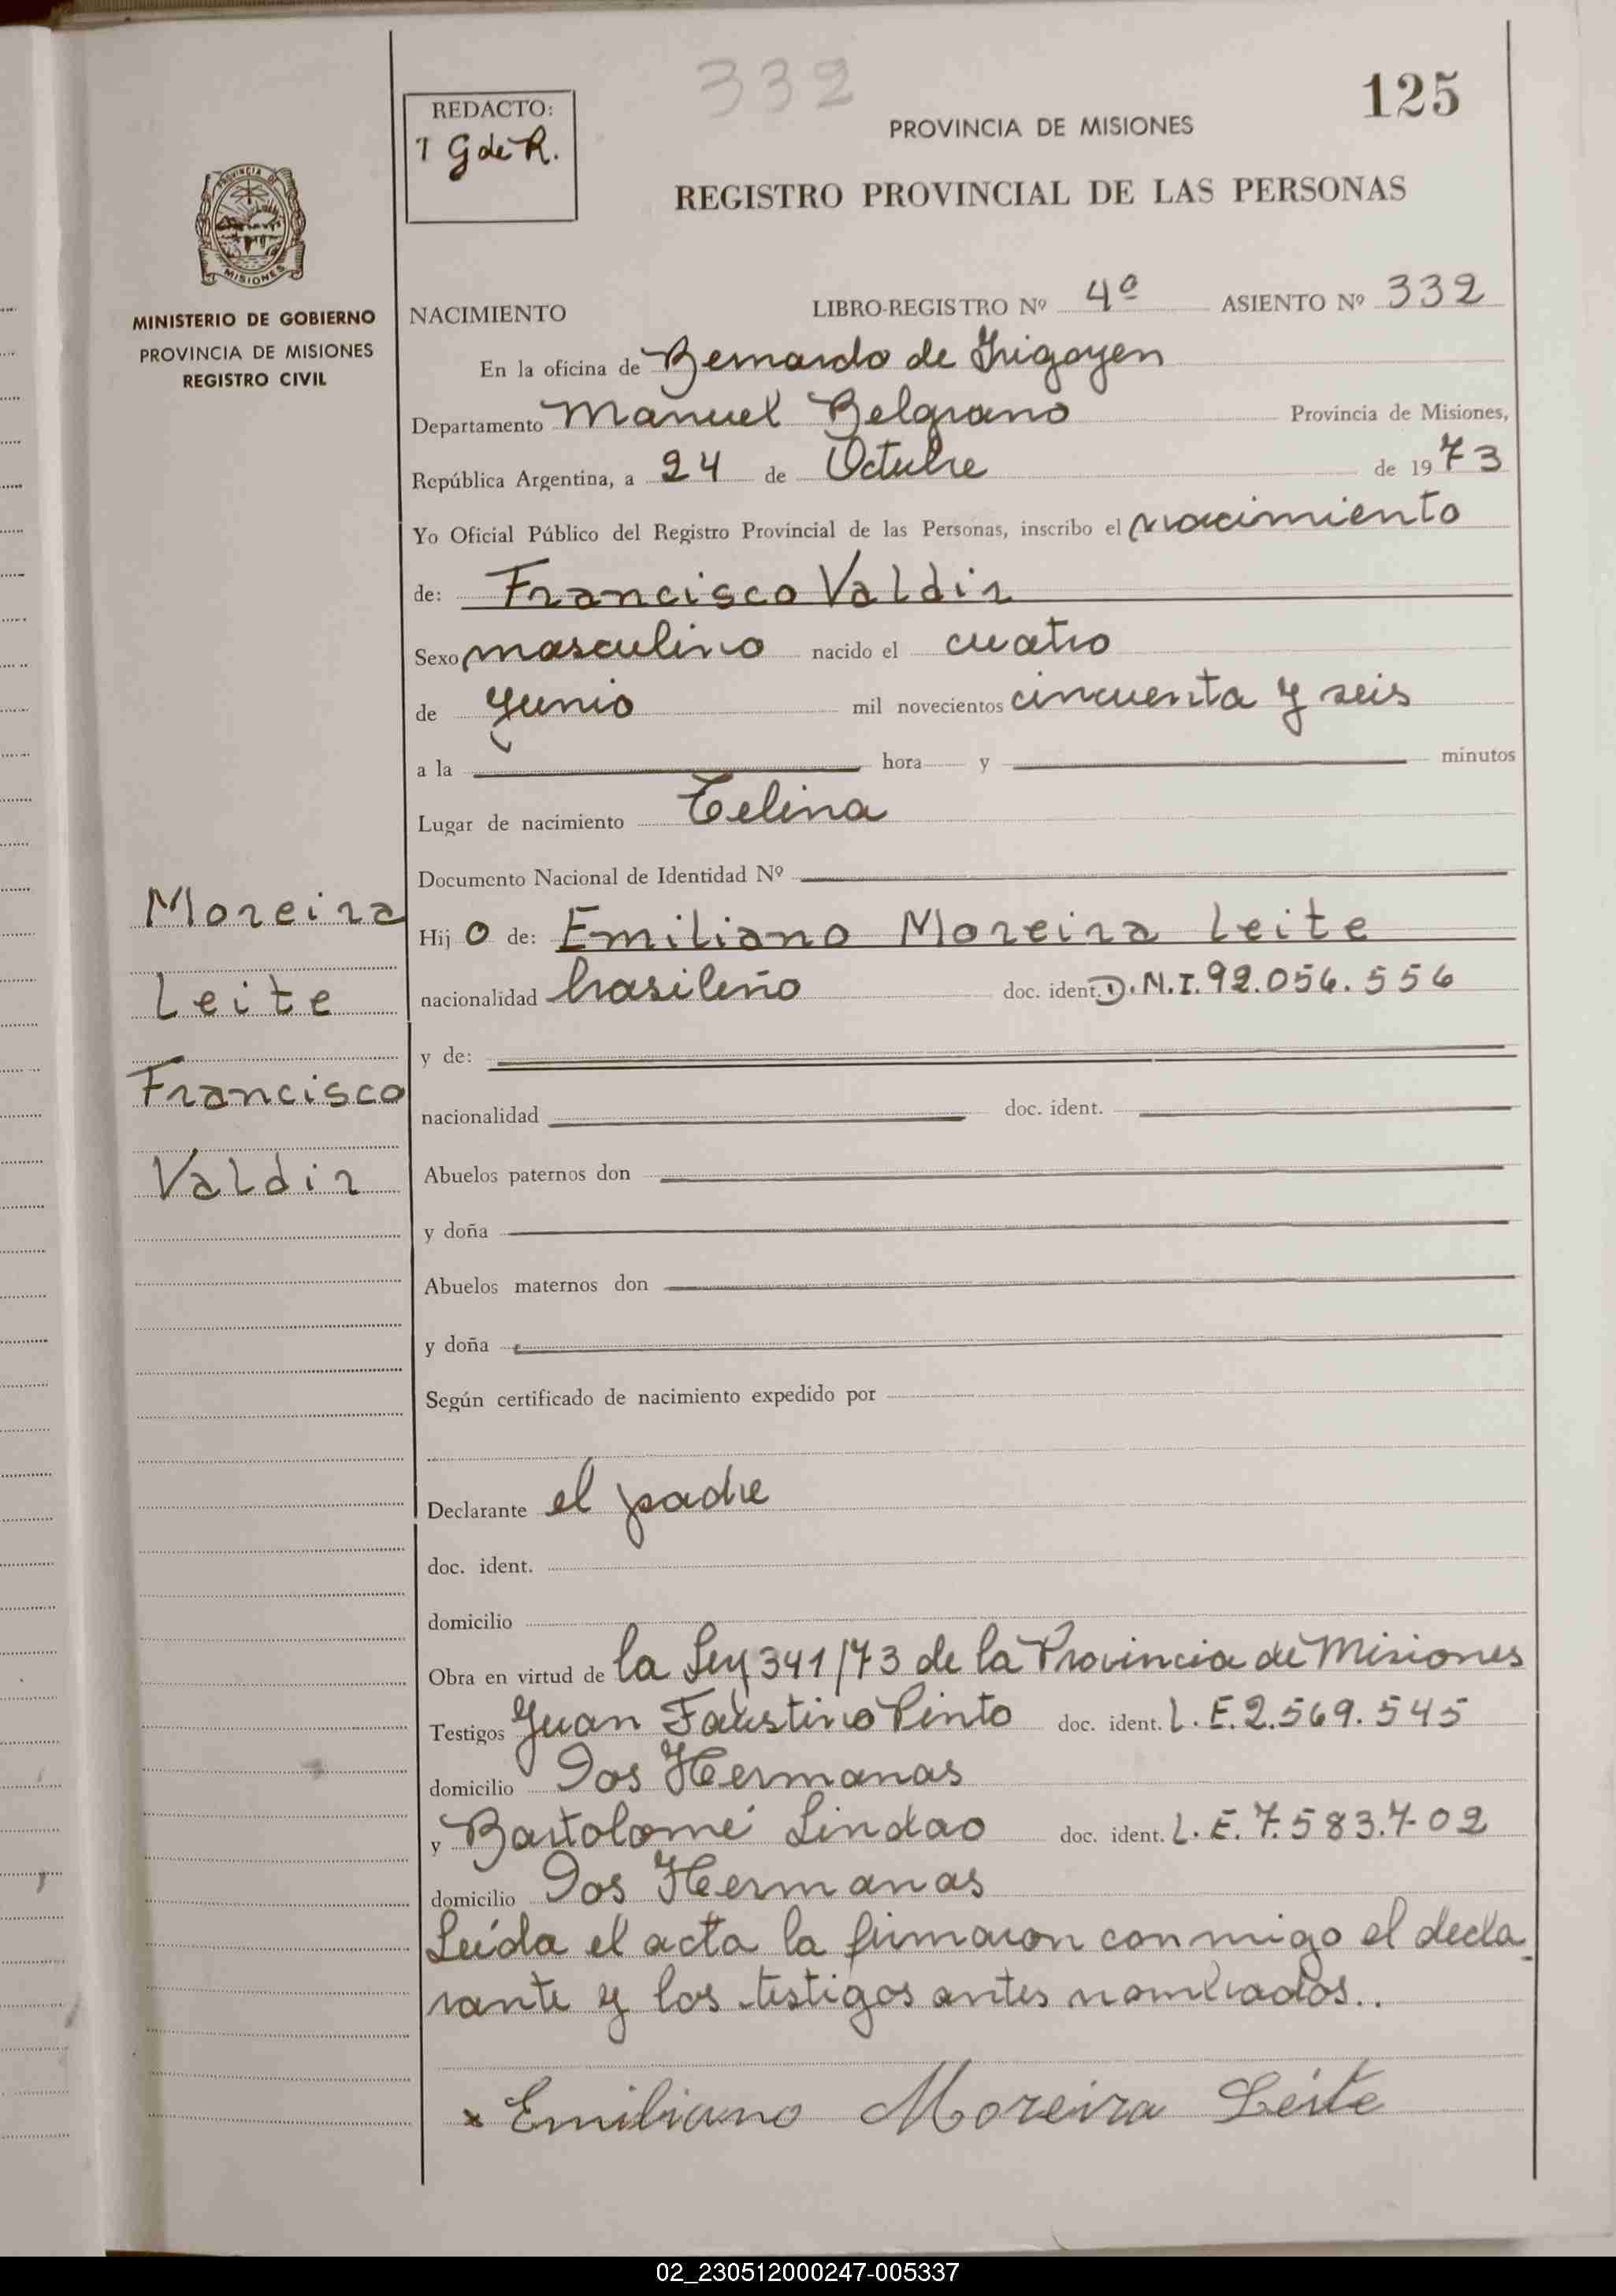 332
125
REDACTO:
1 G de R.
PROVINCIA DE MISIONES
REGISTRO PROVINCIAL DE LAS PERSONAS
PROVINCIA DE
MISIONES
MINISTERIO DE GOBIERNO
PROVINCIA DE MISIONES
REGISTRO CIVIL
NACIMIENTO LIBRO-REGISTRO Nº 4º ASIENTO Nº 332
En la oficina de Bernardo de Irigoyen
Departamento Manuel Belgrano Provincia de Misiones,
República Argentina, a 24 de Octubre de 1973
Yo Oficial Público del Registro Provincial de las Personas, inscribo el nacimiento
de: Francisco Valdir
Sexo masculino nacido el cuatro
de Junio mil novecientos cincuenta y seis
a la hora y minutos
Lugar de nacimiento Celina
Documento Nacional de Identidad Nº
Moreira
Leite
Francisco
Valdir
Hijo de: Emiliano Moreira Leite
nacionalidad brasileño doc. ident. D.N.I. 92.056.556
y de:
nacionalidad doc. ident.
Abuelos paternos don
y doña
Abuelos maternos don
y doña
Según certificado de nacimiento expedido por
Declarante el padre
doc. ident.
domicilio
Obra en virtud de la Ley 341/73 de la Provincia de Misiones
Testigos Juan Faustino Pinto doc. ident. L.E. 2.569.545
domicilio Dos Hermanas
y Bartolomé Lindao doc. ident. L.E. 7.583.702
domicilio Dos Hermanas
Leída el acta la firmaron conmigo el decla-
rante y los testigos antes nombrados..
x Emiliano Moreira Leite
02_230512000247-005337